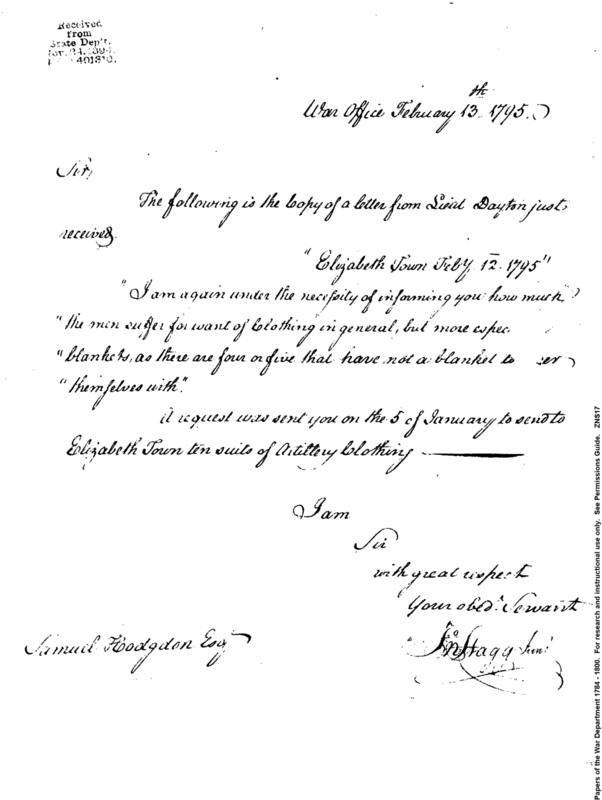 Received
from
State Dep't.
War Office February 13th 1795.
Sir,
The following is the Copy of a letter from Lieut Dayton just
received.
"Elizabeth Town Feby. 12. 1795"
"I am again under the necessity of informing you how much
"the men suffer for want of Clothing in general, but more espec
"blankets, as there are four or five that have not a blanket to er
"themselves with".
A request was sent you on the 5 of January to send to
Elizabeth Town ten suits of Artillery Clothing
I am
Sir
with great respect
Your obed. Servant
Jno Stagg Junr
Samuel Hodgdon Esq
Papers of the War Department 1784 - 1800. For research and instructional use only. See Permissions Guide. ZNS17